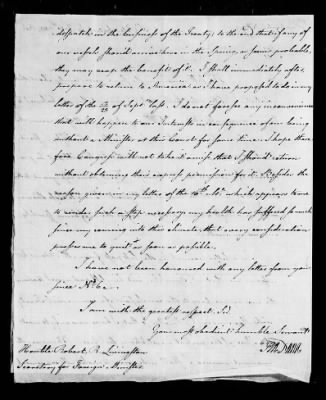 dispatch in the business of the Treaty, to the end that if any of
our vessels should arrive here in the Spring, as seems probable,
they may reap the benefit of it. I shall immediately after,
prepare to return to America as I have proposed to do in my
letter of the of Sept.r last. I do not foresee any inconvenience
that will happen to our Interests in consequence of our being
without a Minister at this Court for some time. I hope there
fore Congress will not take it amiss that I should return
without obtaining their express permission for it. Besides the
reason given in my letter of the which appears to me
to render such a step necessary my health has suffered so much
since my coming into this climate, that every consideration
presses me to quit it as soon as possible.
I have not been honoured with any letter from you
since N.o
I am with the greatest respect Sir
Your most obedient humble Servant
Honble Robert R. Livingston FRA DANA
Secretary for Foreign Affairs